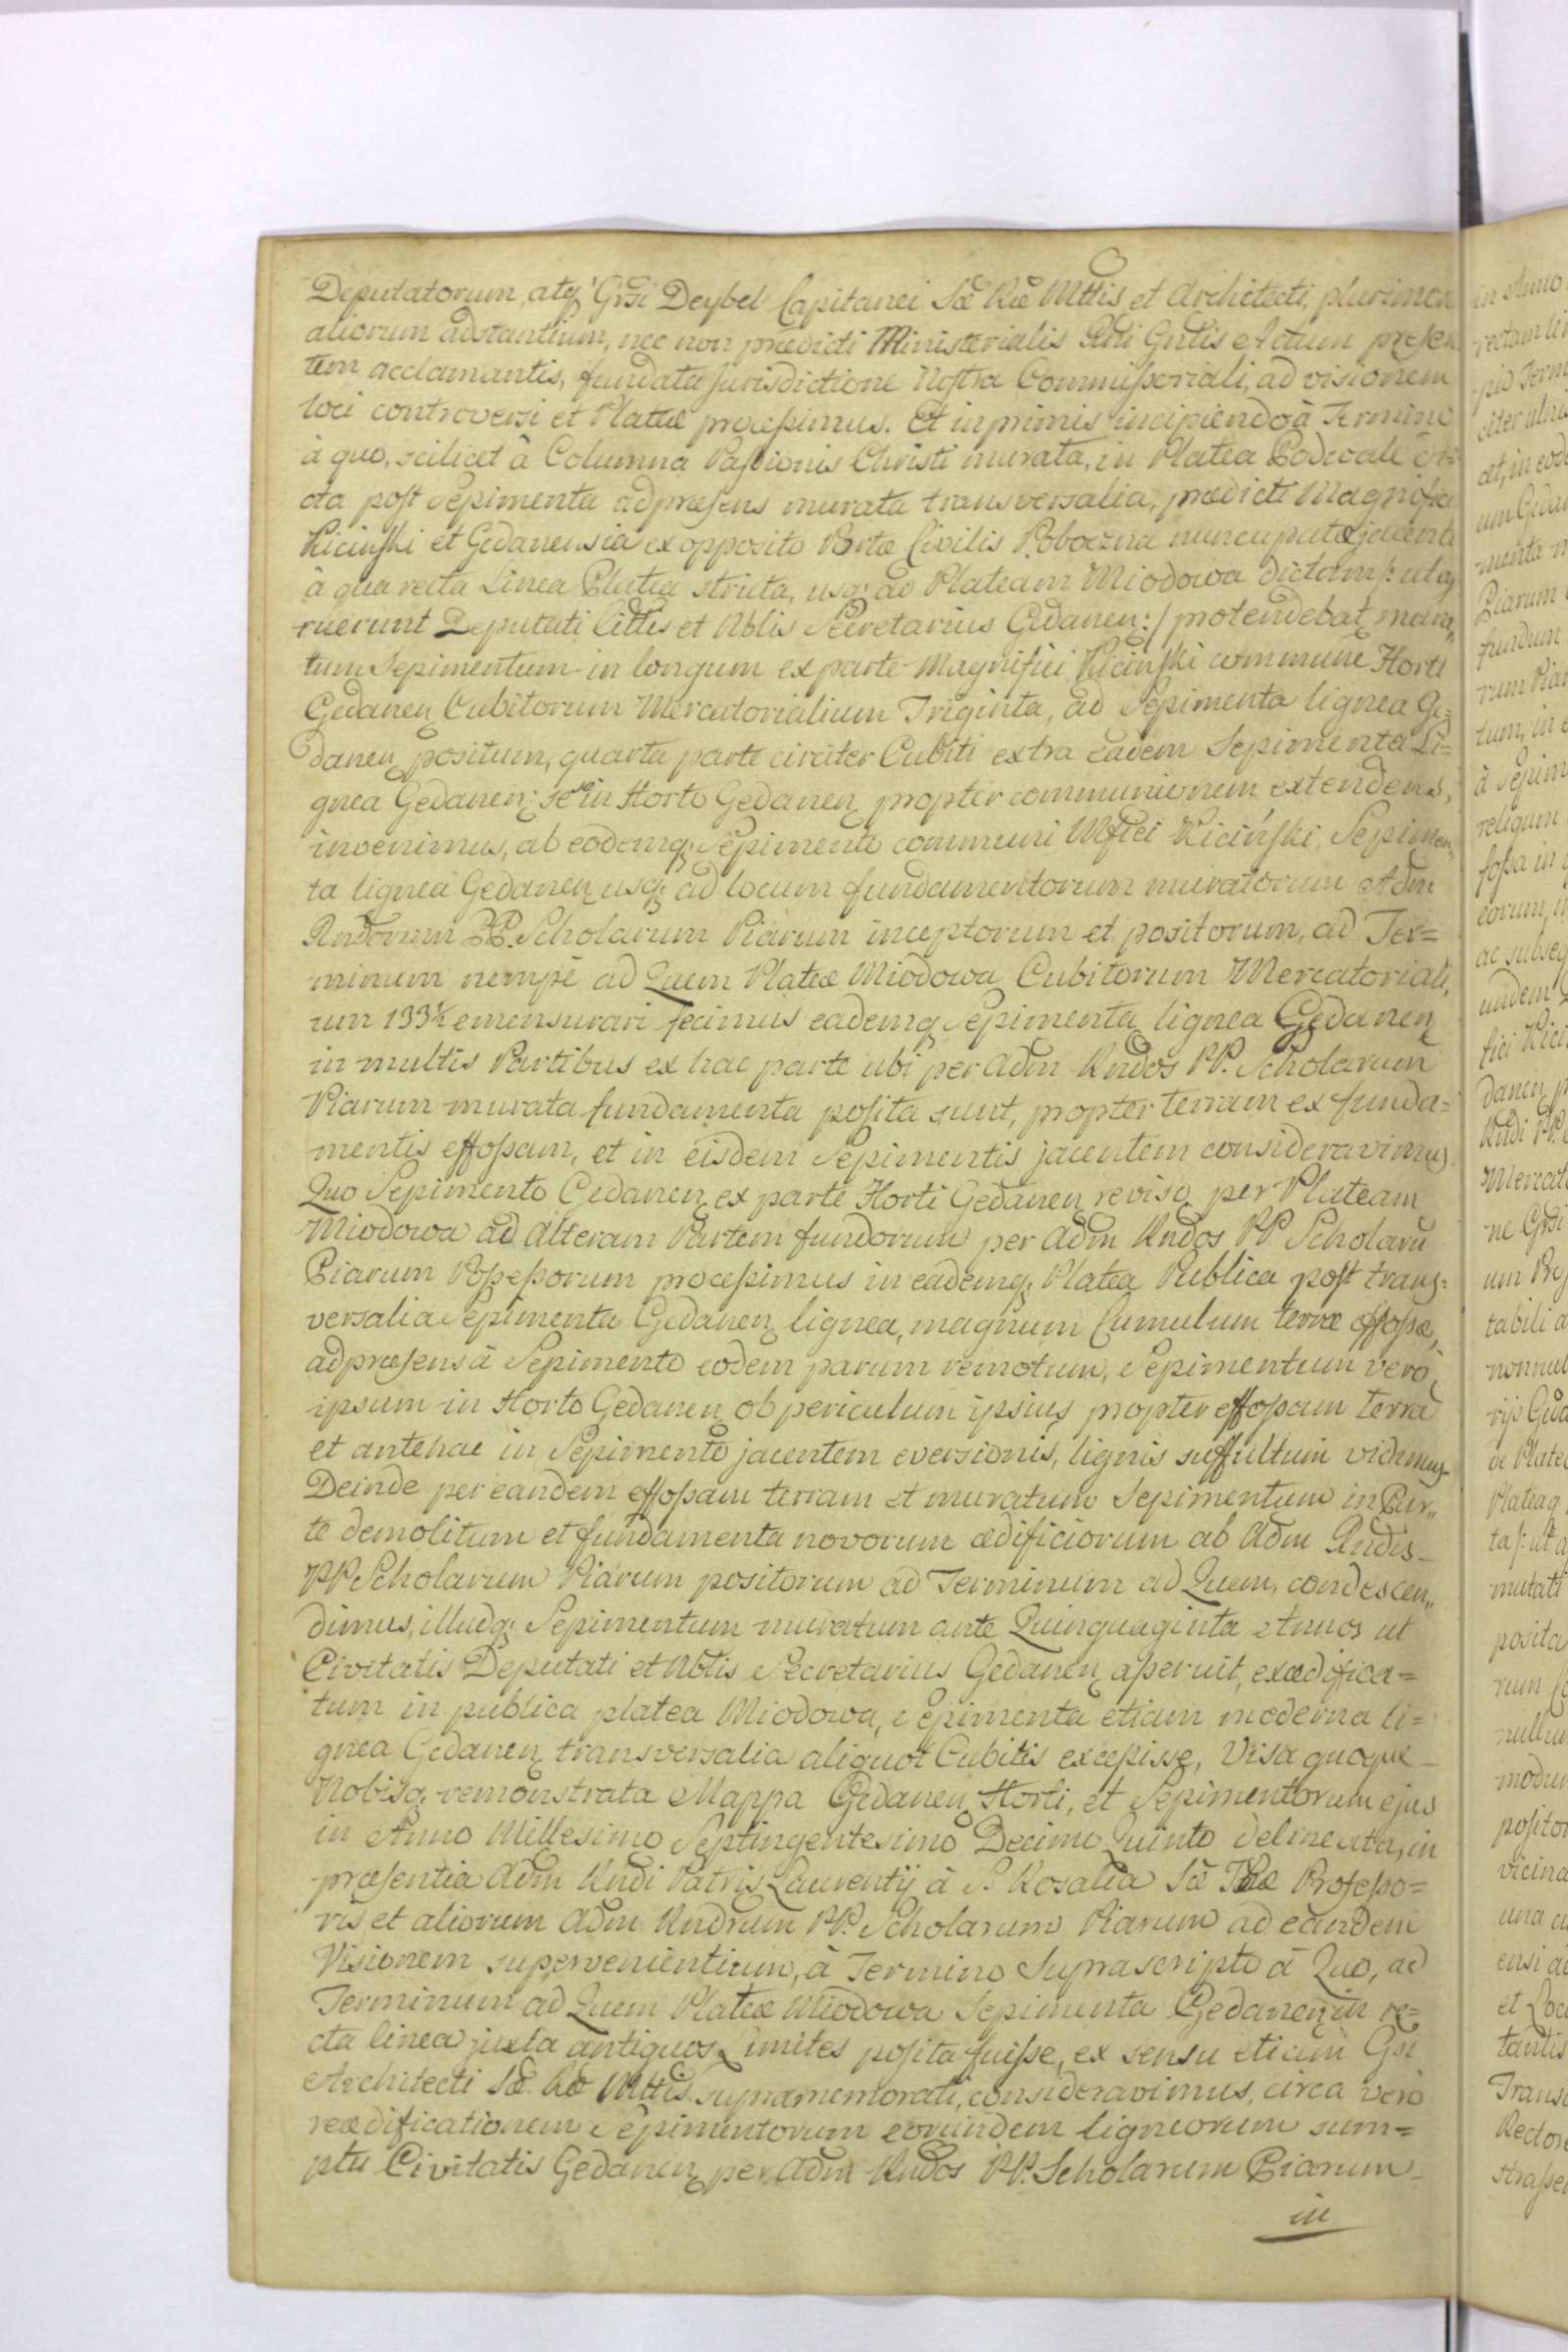 Deputatorum, atq. Grsi Deybel Capitanei Sæ Ræ Mttis et Architecti, plurimor
aliorum adstantium, nec non prædicti Ministerialis Rni Gnlis Actum presen
tem acclamantis, fundata Jurisdictione Nostra Commissoriali, ad visionem
loci controversi et Plateæ processimus. Et inprimis incipiendo à Termino
à quo, scilicet à Columna Passionis Christi murata, in Platea Podwale ere=
cta post Sepimenta adpræsens murata transversalia, prædicti Magnifici
Kicinski et Gedanensia ex opposito Portæ Civilis Poboczna nuncupatæ jacenti
à qua recta Linea Platea structa, usq. ad Plateam Miodowa dictam /: ut as
ruerunt Deputati Cittis et Nblis Secretarius Gedanen: / protendebat, mura,
tum Sepimentum in longum ex parte Magnifici Kicinski commune Horti
Gedanen Cubitorum Mercatorialium Triginta, ad Sepimenta lignea Ge=
danen positum, quarta parte circiter Cubiti extra eadem Sepimenta Li=
gnea Gedanen: se in Horto Gedanen propter communionem extendens,
invenimus, ab eodemq. Sepimento communi Mfici Kiciński, Sepimen,
ta lignea Gedanen usq. ad locum fundamentorum muratorum Adm
Rndorum PP. Scholarum Piarum inceptorum et positorum, ad Ter=
minum nempè ad Quem Plateæ Miodowa Cubitorum Mercatoriali,
um 133½ emensurari fecimus eademq. Sepimenta lignea Gedanen
in multis Partibus ex hac parte ubi per Adm Rndos PP. Scholarum
Piarum murata fundamenta posita sunt, propter terram ex funda=
mentis effossam, et in eisdem Sepimentis jacentem consideravimus
Quo Sepimento Gedanen ex parte Horti Gedanen reviso per Plateam
Miodowa ad Alteram Partem fundorum per Adm Rndos PP Scholarū
Piarum Possessorum processimus in eademq. Platea Publica post trans=
versalia Sepimenta Gedanen lignea, magnum Cumulum terræ effossæ,
adpræsens à Sepimento eodem parum remotum, Sepimentum verò
ipsum in Horto Gedanen ob periculum ipsius propter effossam terrā
et antehac in Sepimento jacentem eversionis, lignis suffultum vidimus
Deinde per eandem effossam terram et muratum Sepimentum in Par,,
te demolitum et fundamenta novorum ædificiorum ab Adm Rndis
PP Scholarum Piarum positorum ad Terminum ad Quem, condescen,,
dimus, illudq. Sepimentum muratum ante Quinquaginta Annos ut
Civitatis Deputati et Nblis Secretarius Gedanen asseruit, exædifica=
tum in publica platea Miodowa, Sepimenta etiam moderna li=
gnea Gedanen transversalia aliquot Cubitis excepisse, Visa quoque
Nobisq. remonstrata Mappa Gedanen Horti, et Sepimentorum ejus
in Anno Millesimo Septingentesimo Decimo Quinto delineata, in
præsentia Adm Rndi Patris Laurentij à S. Rosalia Sæ Thæ Professo=
ris et aliorum Adm Rndrum PP. Scholarum Piarum ad eandem
Visionem supervenientium, à Termino Suprascripto à Quo, ad
Terminum ad Quem Plateæ Miodowa Sepimenta Gedanen in re=
cta linea juxta antiquos Limites posita fuisse, ex sensu etiam Gsi
Architecti Sæ Ræ Mttis supramemorati, consideravimus, circa verò
reædificationem Sepimentorum eorundem ligneorum sum=
ptu Civitatis Gedanen per Adm Rndos PP. Scholarum Piarum
in